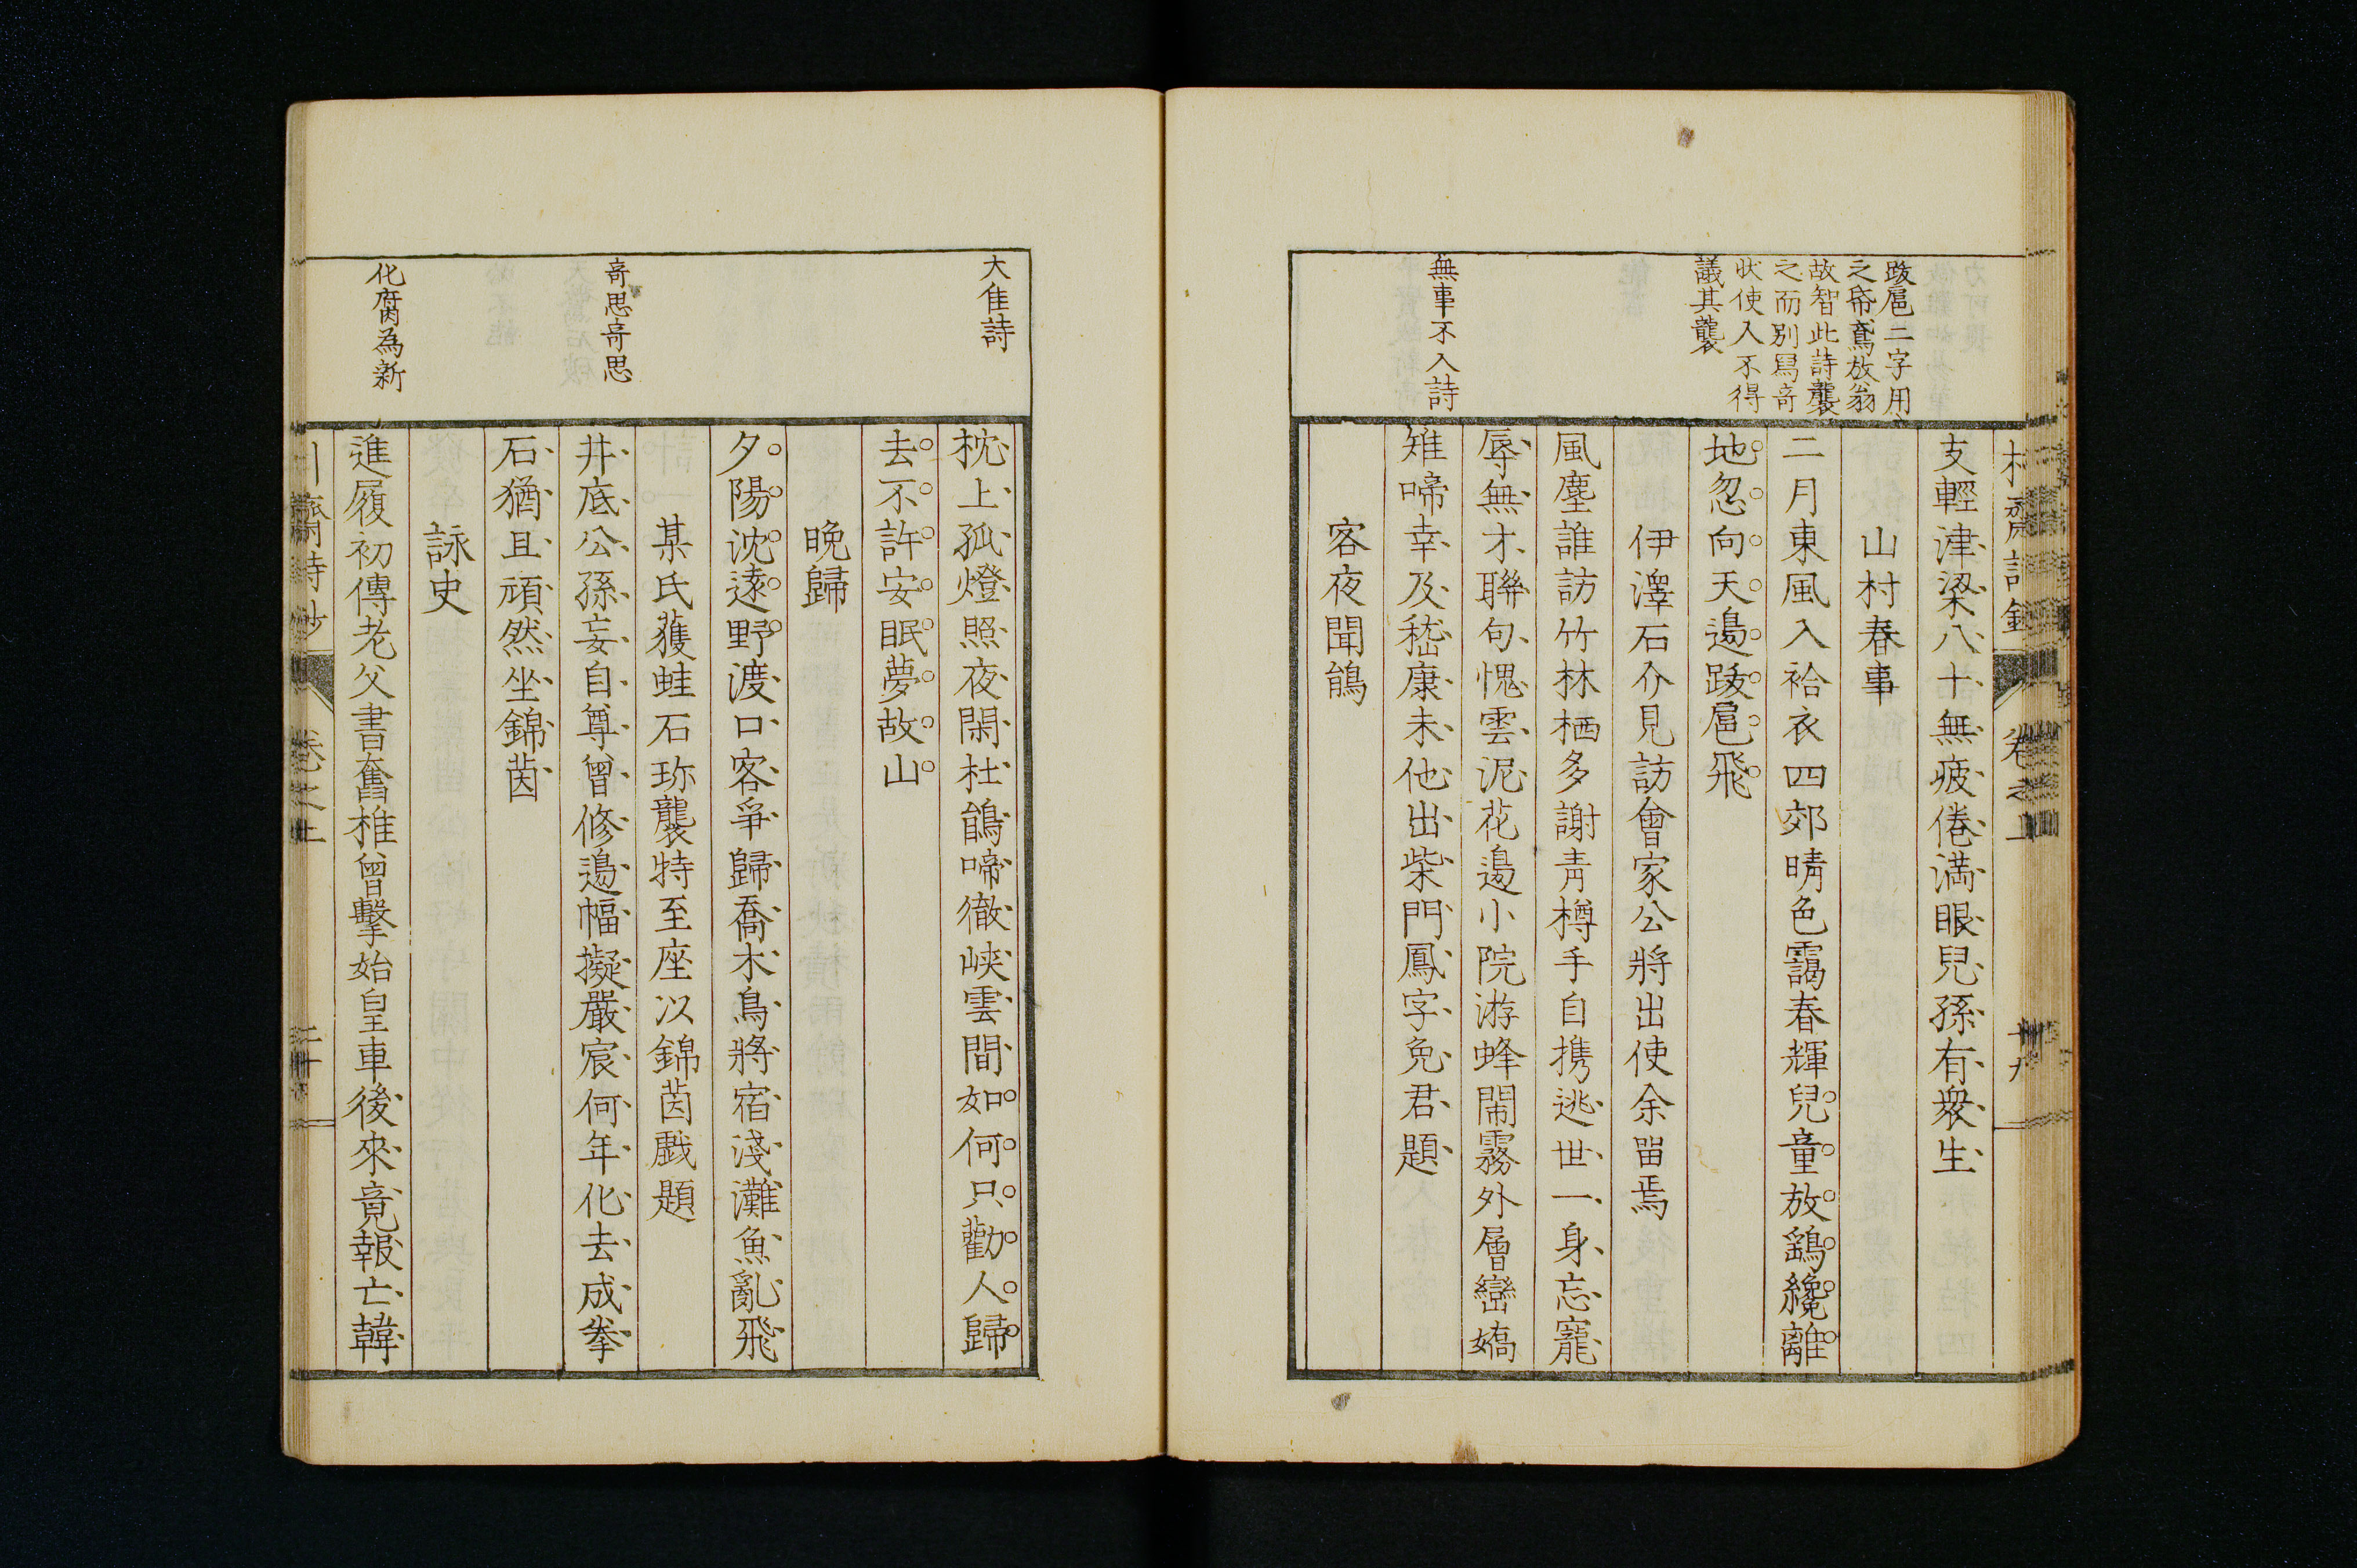 支輕津梁八十無疲倦滿眼兒孫有衆生
山村春事
二月東風入袷衣四郊晴色靄春輝兒童放鷂纔離
地忽向天邊跋扈飛
伊澤石介見訪會家公將出使余畱焉
風塵誰訪竹林栖多謝青樽手自携逃世一身忘寵
辱無才聯句愧雲泥花邊小院游蜂鬧霧外層巒嬌
雉啼幸及嵇康未他出柴門鳳字免君題
客夜聞鵑
跋扈二字用
之帋鳶放翁
故智此詩襲
之而別爲竒
狀使入不得
議其襲
無事不入詩
卷之上
枕上孤燈照夜閑杜鵑啼徹峽雲間如何只勸人歸
去不許安眠夢故山
晩歸
夕陽沈遠野渡口客爭歸喬木鳥將宿淺灘魚亂飛
某氏獲蛙石珎襲特至座以錦茵戲題
井底公孫妄自尊曾修邊幅擬嚴宸何年化去成拳
石猶且頑然坐錦茵
詠史
進履初傳老父書奮椎曾擊始皇車後來竟報亡韓
大隹詩
竒思竒思
化腐為新
卷之上
二十